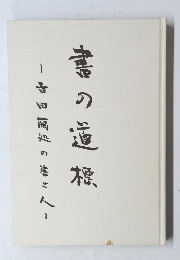 書の道標
－吉田＿＿の書と人－